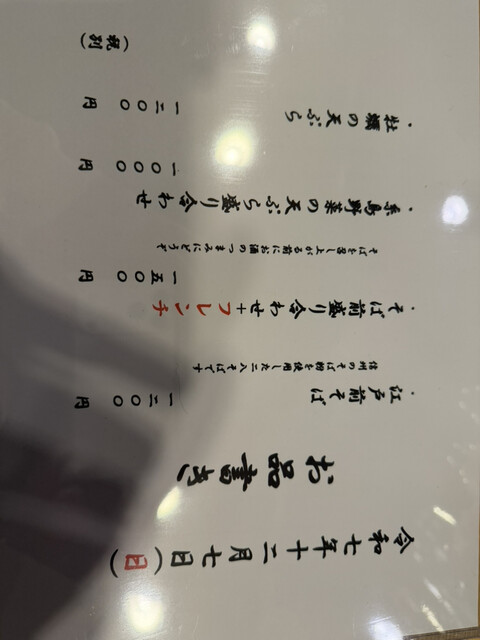 令和七年十二月七日(日)
お品書き
・江戸前そば 一二〇〇円
信州のそば粉を使用した二八そばです
・そば前盛り合わせ+フレンチ 一五〇〇円
そばを召し上がる前にお酒のつまみにどうぞ
・糸島野菜の天ぷら盛り合わせ 一〇〇〇円
・牡蠣の天ぷら 一二〇〇円
(税別)